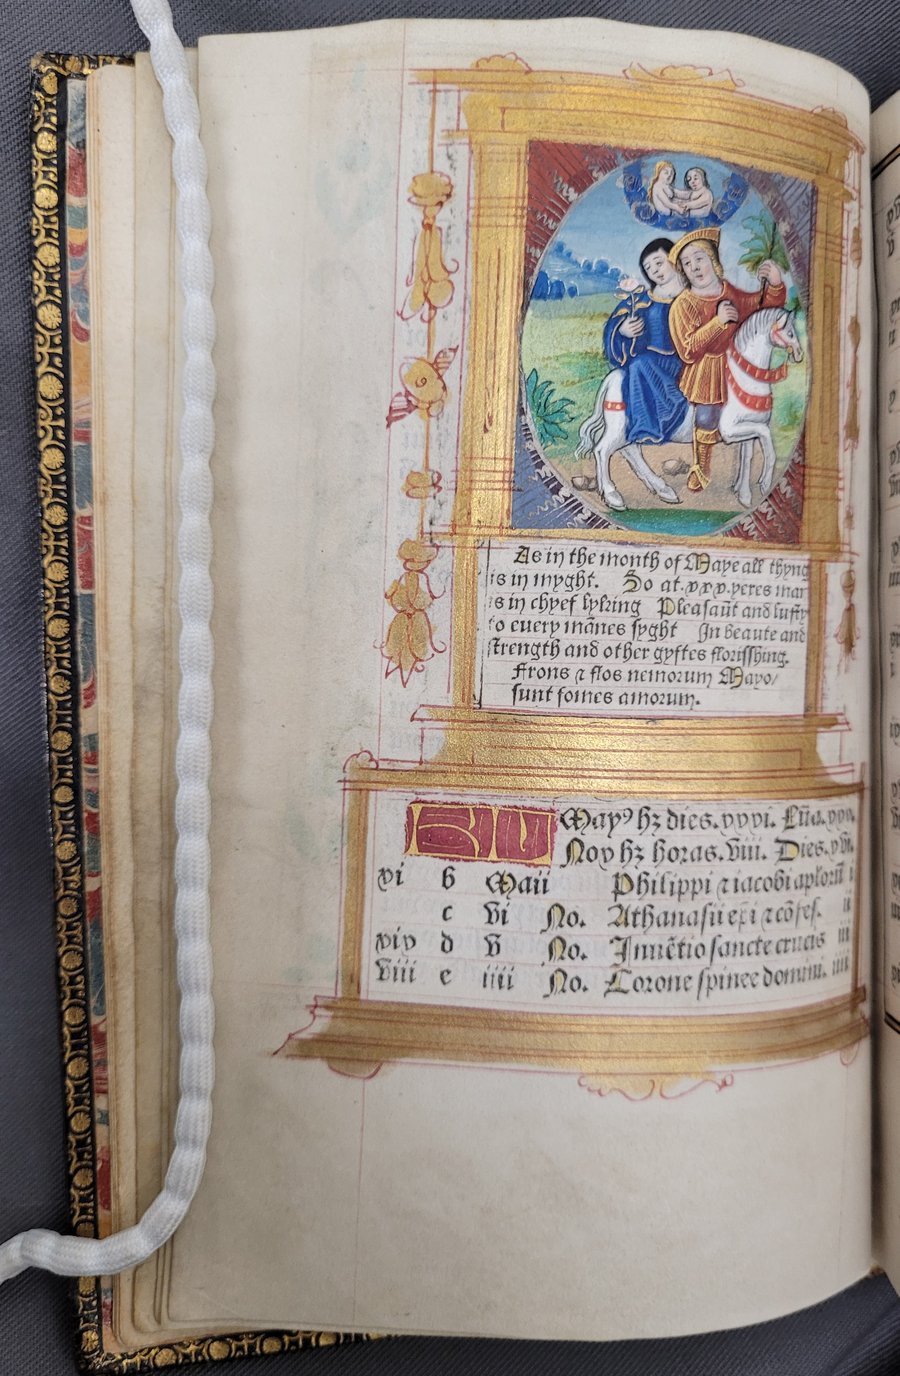 As in the month of Maye all thyng
is in myght. So at .xxx. yeres man
is in chyef lyking Pleasaūt and lusty
to euery mānes syght In beaute and
strength and other gyftes florisshing.
Frons ⁊ flos nemorum Mayo/
sunt fomes amorum.
KL Mayꝰ hꝫ dies .xxxi. Lūa .xxx.
Nox hꝫ horas .viii. Dies .xvi.
xi b Maii Philippi ⁊ iacobi apłorū i
c vi No. Athanasii ep̄i ⁊ cōfes. ii
xix d v No. Inuētio sancte crucis iii
viii e iiii No. Corone spinee domini. iiii